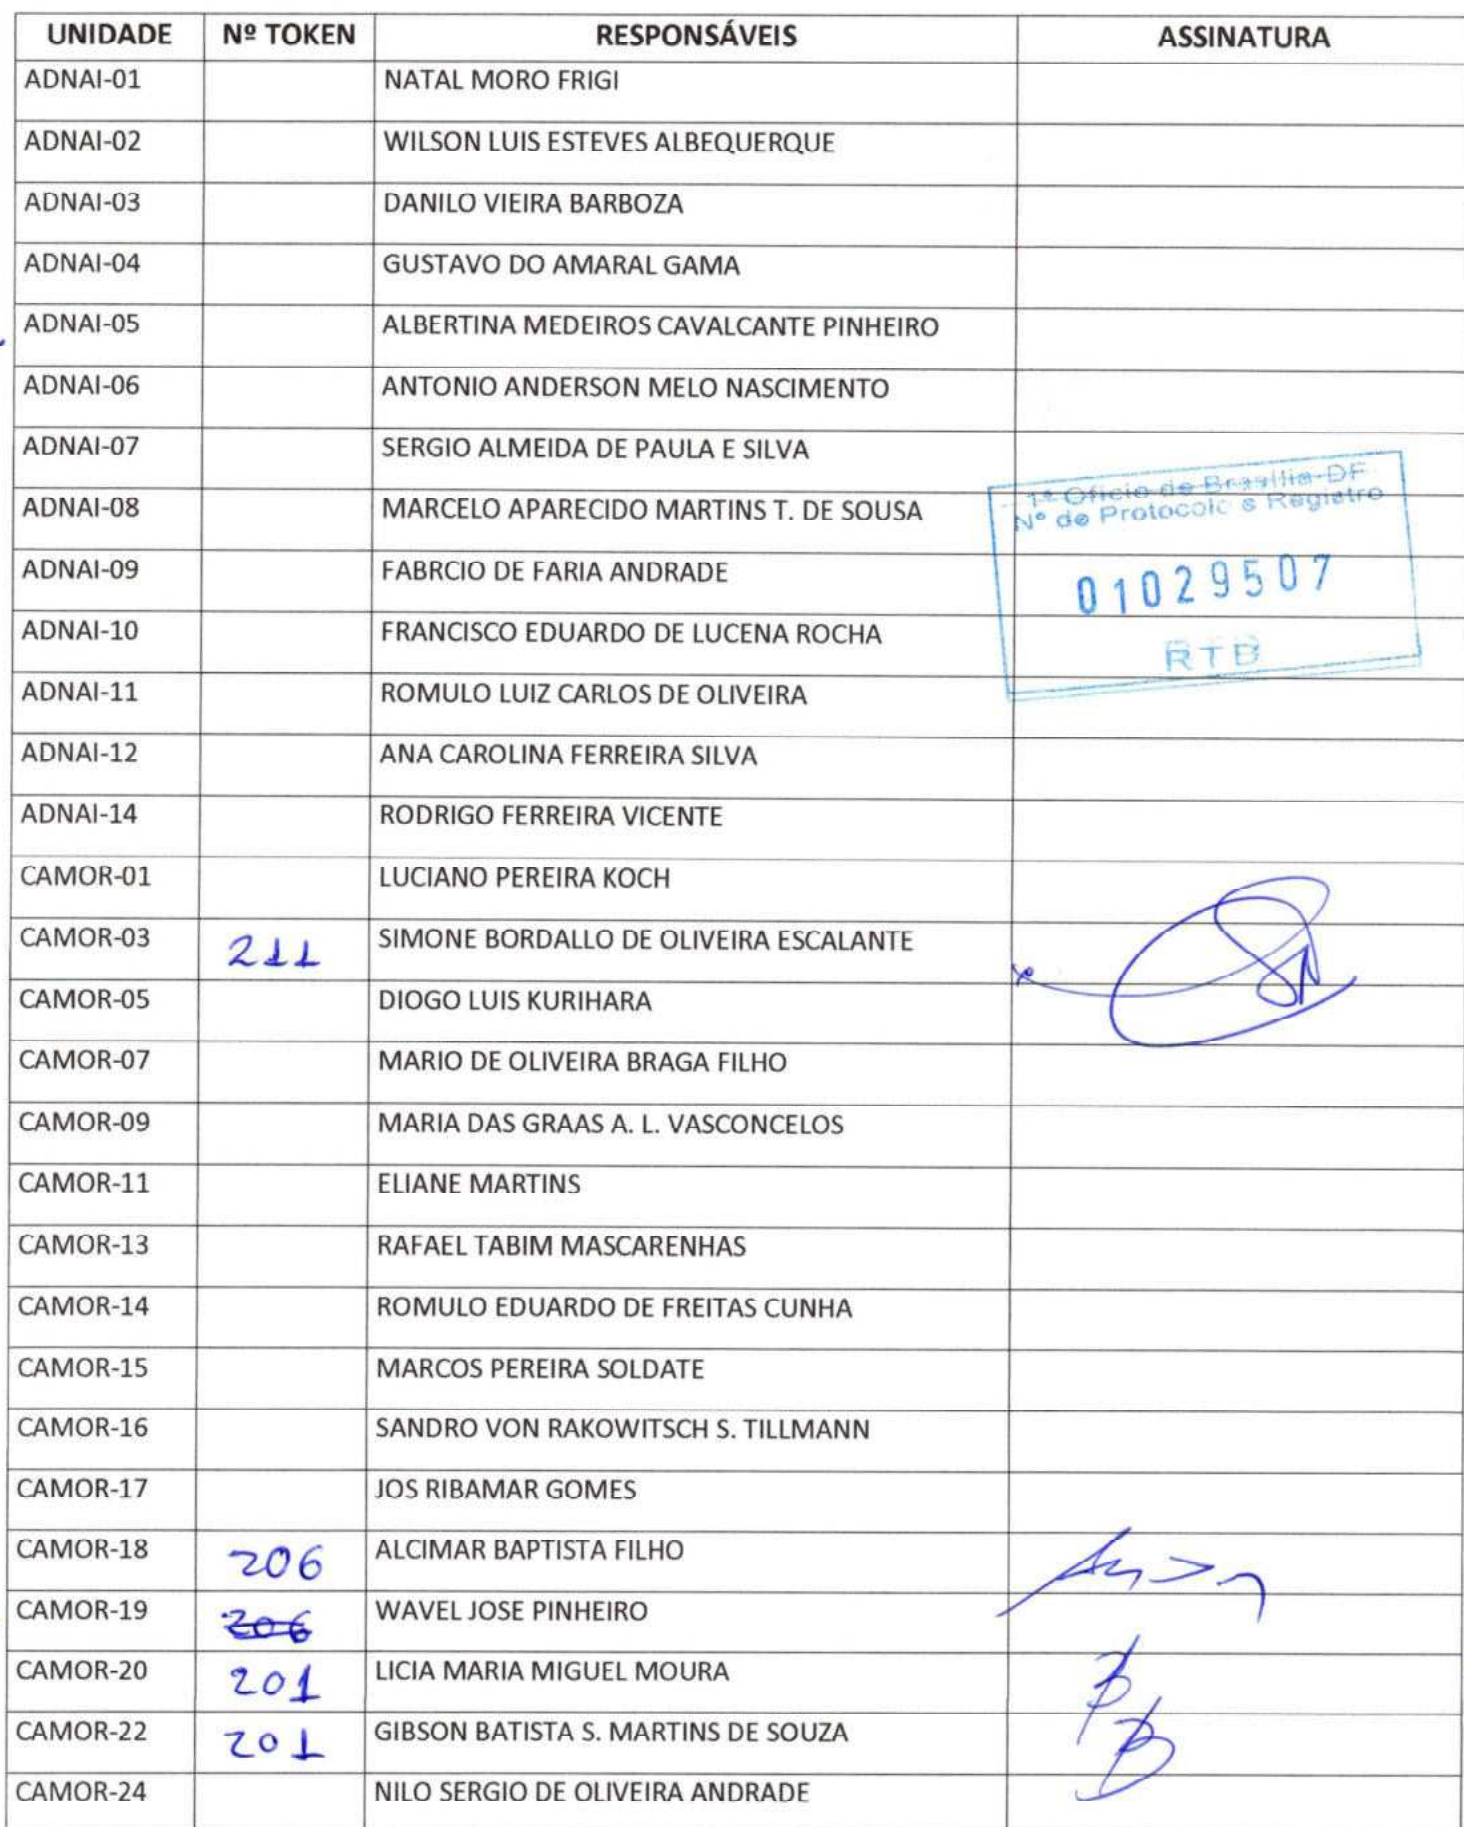 UNIDADE Nº TOKEN RESPONSÁVEIS ASSINATURA
ADNAI-01 NATAL MORO FRIGI
ADNAI-02 WILSON LUIS ESTEVES ALBEQUERQUE
ADNAI-03 DANILO VIEIRA BARBOZA
ADNAI-04 GUSTAVO DO AMARAL GAMA
ADNAI-05 ALBERTINA MEDEIROS CAVALCANTE PINHEIRO
ADNAI-06 ANTONIO ANDERSON MELO NASCIMENTO
ADNAI-07 SERGIO ALMEIDA DE PAULA E SILVA
1º Oficio de Brasília-DF
ADNAI-08 MARCELO APARECIDO MARTINS T. DE SOUSA
Nº de Protocolo e Registro
ADNAI-09 FABRCIO DE FARIA ANDRADE
01029507
ADNAI-10 FRANCISCO EDUARDO DE LUCENA ROCHA
RTD
ADNAI-11 ROMULO LUIZ CARLOS DE OLIVEIRA
ADNAI-12 ANA CAROLINA FERREIRA SILVA
ADNAI-14 RODRIGO FERREIRA VICENTE
CAMOR-01 LUCIANO PEREIRA KOCH
CAMOR-03 211 SIMONE BORDALLO DE OLIVEIRA ESCALANTE
CAMOR-05 DIOGO LUIS KURIHARA
CAMOR-07 MARIO DE OLIVEIRA BRAGA FILHO
CAMOR-09 MARIA DAS GRAAS A. L. VASCONCELOS
CAMOR-11 ELIANE MARTINS
CAMOR-13 RAFAEL TABIM MASCARENHAS
CAMOR-14 ROMULO EDUARDO DE FREITAS CUNHA
CAMOR-15 MARCOS PEREIRA SOLDATE
CAMOR-16 SANDRO VON RAKOWITSCH S. TILLMANN
CAMOR-17 JOS RIBAMAR GOMES
CAMOR-18 206 ALCIMAR BAPTISTA FILHO
CAMOR-19 206 WAVEL JOSE PINHEIRO
CAMOR-20 201 LICIA MARIA MIGUEL MOURA
CAMOR-22 201 GIBSON BATISTA S. MARTINS DE SOUZA
CAMOR-24 NILO SERGIO DE OLIVEIRA ANDRADE